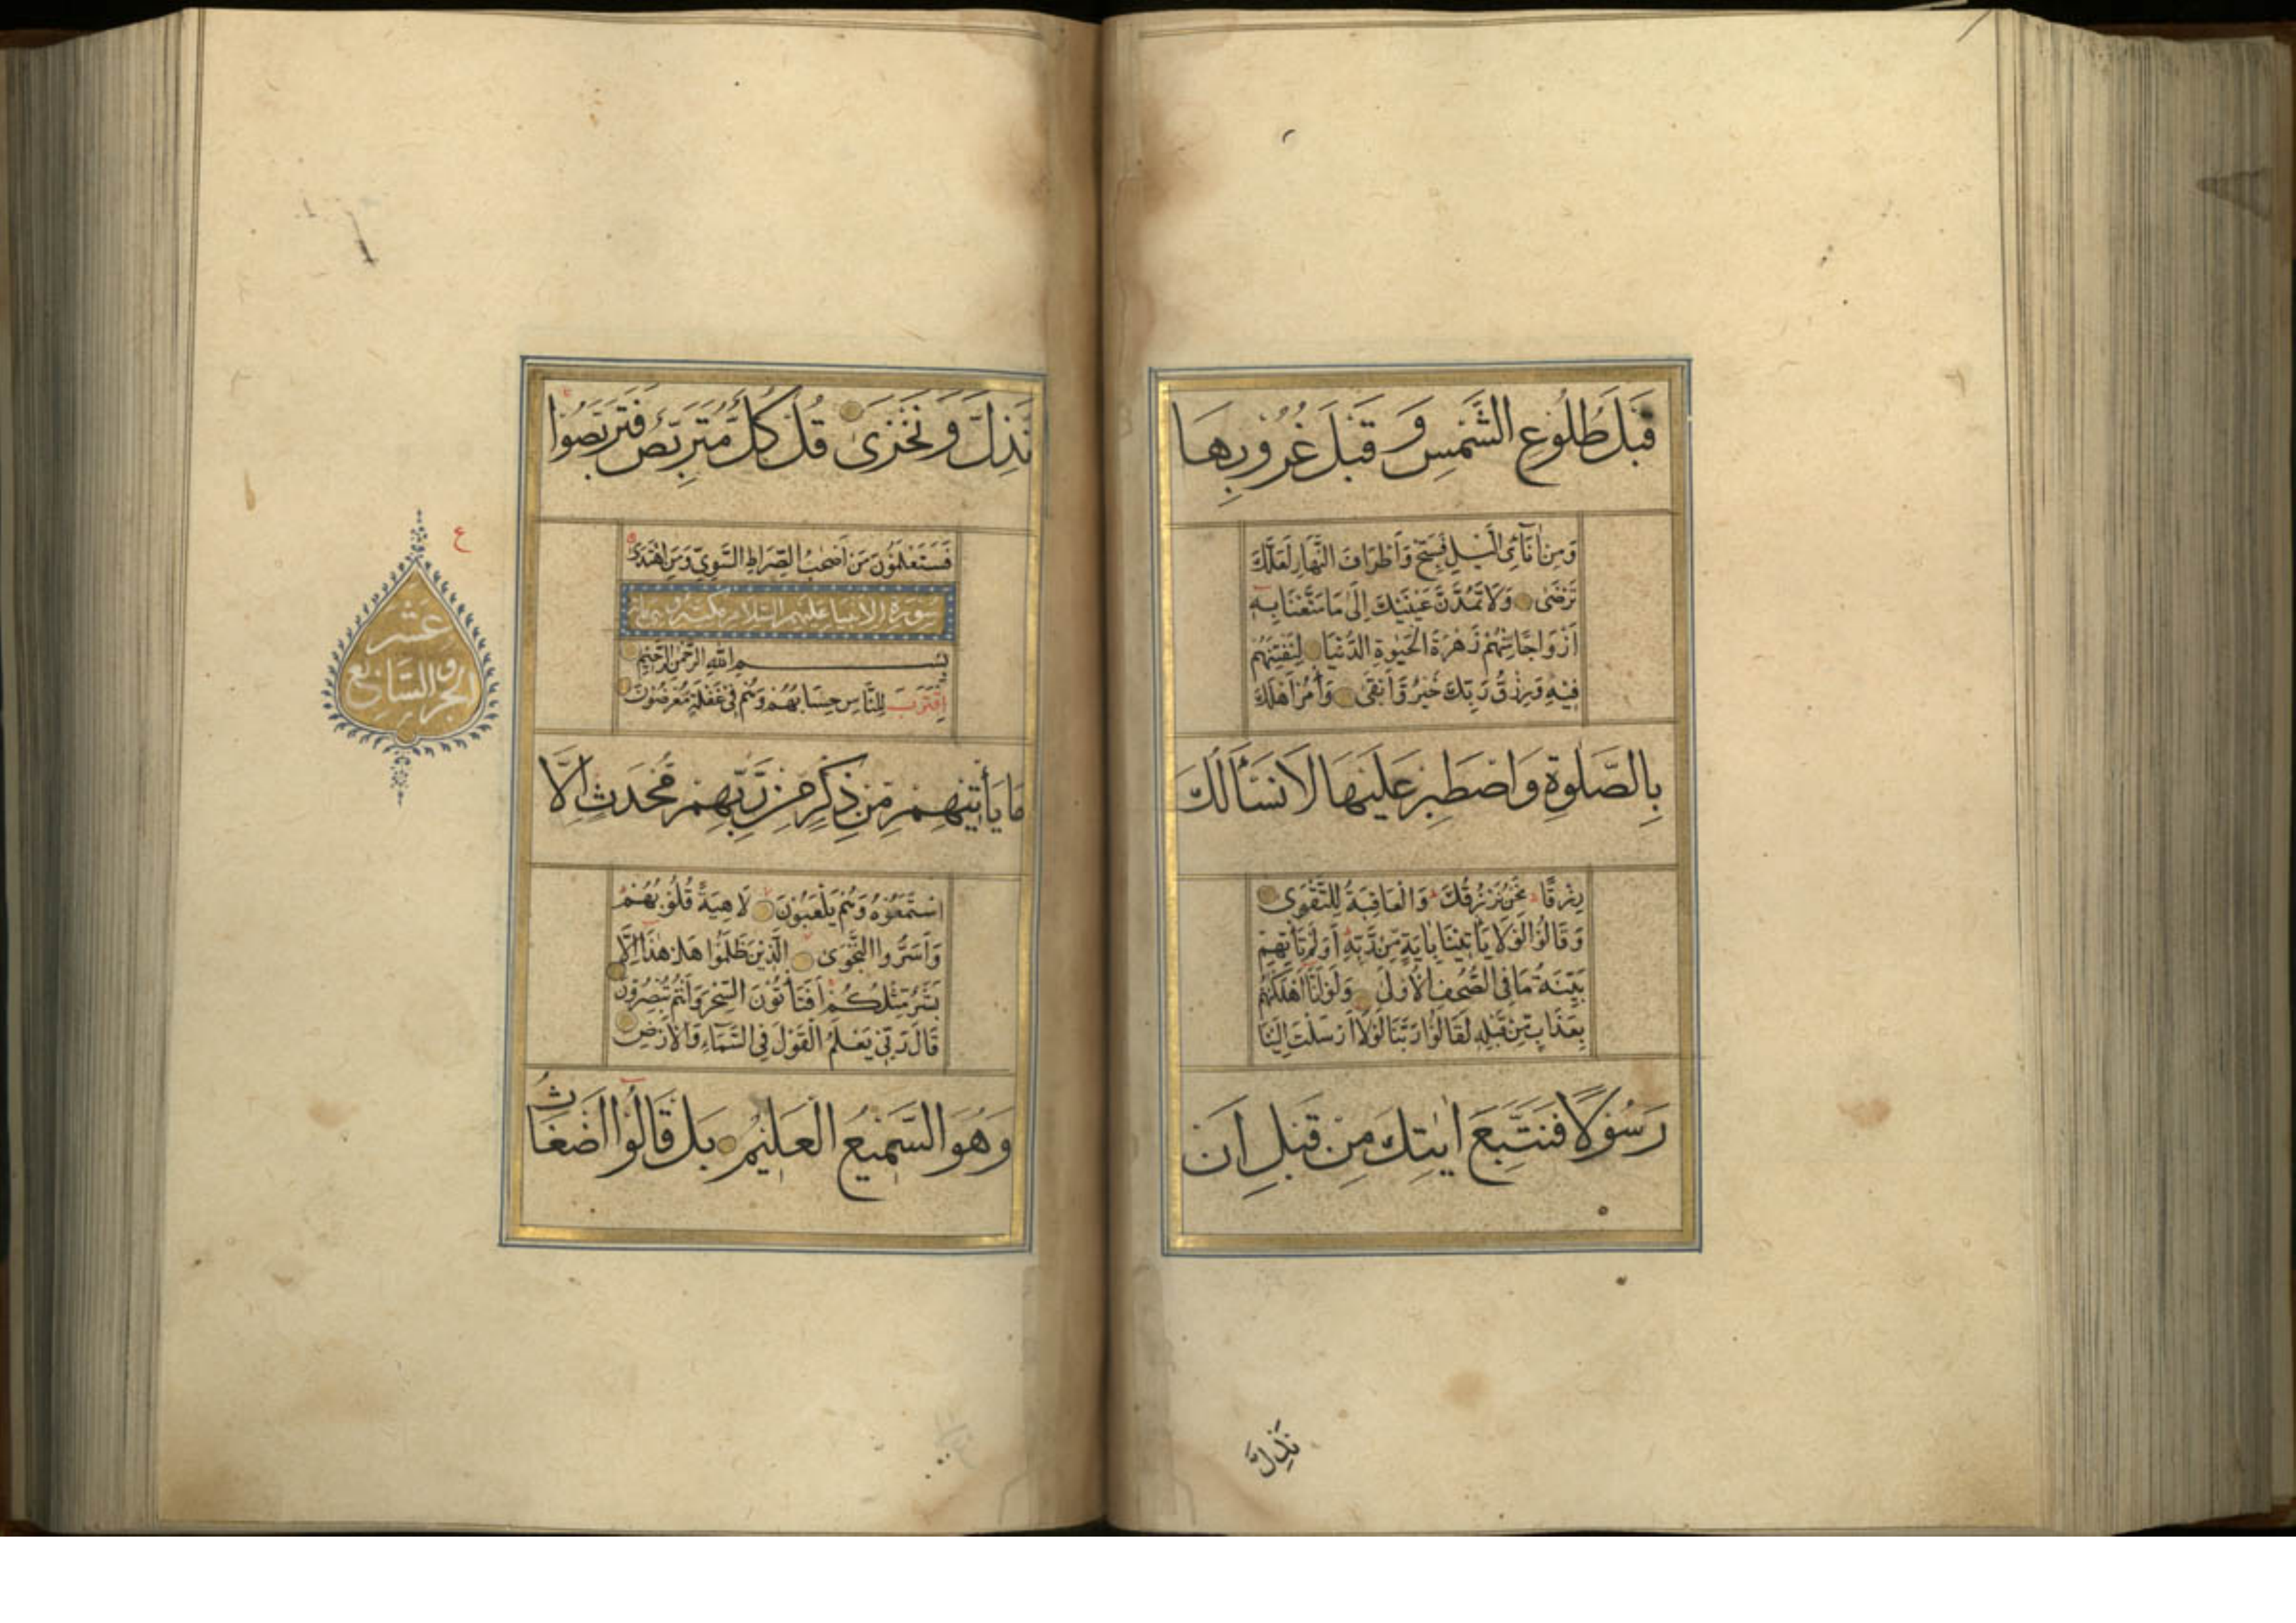 قَبْلَ طُلُوعِ الشَّمْسِ وَ قَبْلَ غُرُوبِهَا
وَمِنْ اٰنَآئِ الَّيْلِ فَسَبِّحْ وَاَطْرَافَ النَّهَارِ لَعَلَّكَ
تَرْضٰى وَلَا تَمُدَّنَّ عَيْنَيْكَ اِلٰى مَا مَتَّعْنَا بِهٖ
اَزْوَاجًا مِنْهُمْ زَهْرَةَ الْحَيٰوةِ الدُّنْيَا لِنَفْتِنَهُمْ
فِيْهِ وَرِزْقُ رَبِّكَ خَيْرٌ وَّاَبْقٰى وَأْمُرْ اَهْلَكَ
بِالصَّلٰوةِ وَاصْطَبِرْ عَلَيْهَا لَا نَسْأَلُكَ
رِزْقًا نَحْنُ نَرْزُقُكَ وَالْعَاقِبَةُ لِلتَّقْوٰى
وَقَالُوْا لَوْلَا يَأْتِيْنَا بِاٰيَةٍ مِّنْ رَّبِّهٖ اَوَلَمْ تَأْتِهِمْ
بَيِّنَةُ مَا فِى الصُّحُفِ الْاُوْلٰى وَلَوْ اَنَّا اَهْلَكْنٰهُمْ
بِعَذَابٍ مِّنْ قَبْلِهٖ لَقَالُوْا رَبَّنَا لَوْلَا اَرْسَلْتَ اِلَيْنَا
رَسُوْلًا فَنَتَّبِعَ اٰيٰتِكَ مِنْ قَبْلِ اَنْ
نَذِلَّ
نَذِلَّ وَ نَخْزٰى قُلْ كُلٌّ مُّتَرَبِّصٌ فَتَرَبَّصُوْا
فَسَتَعْلَمُوْنَ مَنْ اَصْحٰبُ الصِّرَاطِ السَّوِيِّ وَمَنِ اهْتَدٰى
سورة الانبيا عليهم السلام مكية
بِسْمِ اللّٰهِ الرَّحْمٰنِ الرَّحِيْمِ
اِقْتَرَبَ لِلنَّاسِ حِسَابُهُمْ وَهُمْ فِىْ غَفْلَةٍ مُّعْرِضُوْنَ
مَا يَأْتِيْهِمْ مِّنْ ذِكْرٍ مِّنْ رَّبِّهِمْ مُّحْدَثٍ اِلَّا
اسْتَمَعُوْهُ وَهُمْ يَلْعَبُوْنَ لَاهِيَةً قُلُوْبُهُمْ
وَاَسَرُّوا النَّجْوَى الَّذِيْنَ ظَلَمُوْا هَلْ هٰذَا اِلَّا
بَشَرٌ مِّثْلُكُمْ اَفَتَأْتُوْنَ السِّحْرَ وَاَنْتُمْ تُبْصِرُوْنَ
قَالَ رَبِّىْ يَعْلَمُ الْقَوْلَ فِى السَّمَآءِ وَالْاَرْضِ
وَهُوَ السَّمِيْعُ الْعَلِيْمُ بَلْ قَالُوْا اَضْغَاثُ
ع
الجزو السابع
عشر